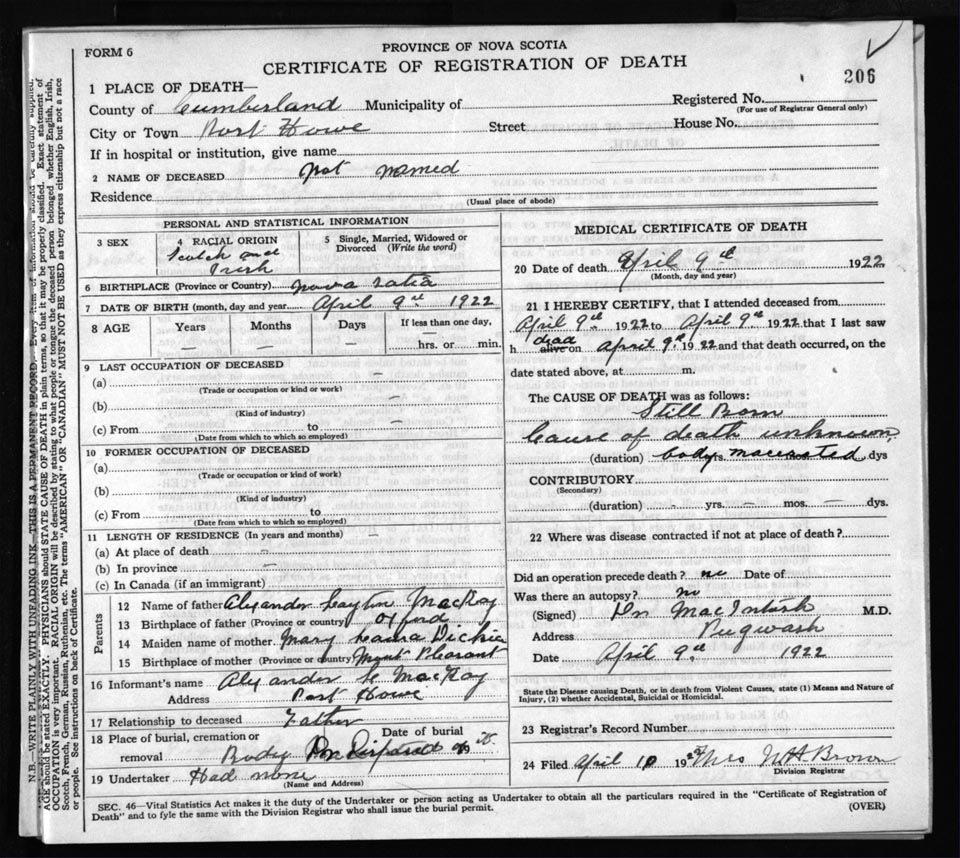 FORM 6
PROVINCE OF NOVA SCOTIA
CERTIFICATE OF REGISTRATION OF DEATH
206
1 PLACE OF DEATH—
County of Cumberland Municipality of
Registered No.
(For use of Registrar General only)
City or Town Port Howe Street House No.
If in hospital or institution, give name
2 NAME OF DECEASED Not named
Residence
(Usual place of abode)
PERSONAL AND STATISTICAL INFORMATION
3 SEX
4 RACIAL ORIGIN
Scotch and
Irish
5 Single, Married, Widowed or
Divorced (Write the word)
6 BIRTHPLACE (Province or Country) Nova Scotia
7 DATE OF BIRTH (month, day and year) April 9th 1922
8 AGE Years Months Days If less than one day,
— — — hrs. or min.
9 LAST OCCUPATION OF DECEASED
(a)
(Trade or occupation or kind or work)
(b)
(Kind of industry)
(c) From to
(Date from which to which so employed)
10 FORMER OCCUPATION OF DECEASED
(a)
(Trade or occupation or kind of work)
(b)
(Kind of industry)
(c) From to
(Date from which to which so employed)
11 LENGTH OF RESIDENCE (In years and months)
(a) At place of death
(b) In province
(c) In Canada (if an immigrant)
Parents
12 Name of father Alexander MacKay
13 Birthplace of father (Province or country) Oxford
14 Maiden name of mother Mary Laura Dickie
15 Birthplace of mother (Province or country) Mount Pleasant
16 Informant's name Alexander MacKay
Address Port Howe
17 Relationship to deceased Father
18 Place of burial, cremation or Date of burial
removal Body
19 Undertaker Had none
(Name and Address)
MEDICAL CERTIFICATE OF DEATH
20 Date of death April 9th 1922
(Month, day and year)
21 I HEREBY CERTIFY, that I attended deceased from
April 9th 1922 to April 9th 1922 that I last saw
dead
h alive on April 9th 1922 and that death occurred, on the
date stated above, at m.
The CAUSE OF DEATH was as follows:
Still Born
Cause of death unknown,
(duration) body yrs. macerated dys
CONTRIBUTORY
(Secondary)
(duration) - yrs. — mos. — dys.
22 Where was disease contracted if not at place of death?
Did an operation precede death? no Date of
Was there an autopsy? no
(Signed) MacIntosh M.D.
Address Pugwash
Date April 9th 1922
State the Disease causing Death, or in death from Violent Causes, state (1) Means and Nature of
Injury, (2) whether Accidental, Suicidal or Homicidal.
23 Registrar's Record Number
24 Filed April 10 1922 Mrs Brown
Division Registrar
SEC. 46—Vital Statistics Act makes it the duty of the Undertaker or person acting as Undertaker to obtain all the particulars required in the "Certificate of Registration of
Death" and to fyle the same with the Division Registrar who shall issue the burial permit.
(OVER)
N.B.—WRITE PLAINLY WITH UNFADING INK—THIS IS A PERMANENT RECORD. Every item of information should be carefully supplied.
AGE should be stated EXACTLY. PHYSICIANS should STATE CAUSE OF DEATH in plain terms, so that it may be properly classified. Exact statement of
OCCUPATION is very important. RACIAL ORIGIN will be described by stating to what people or tongue the deceased person belonged whether English, Irish,
Scotch, French, German, Russian, Ruthenian, etc. The terms "AMERICAN" OR "CANADIAN" MUST NOT BE USED as they express citizenship but not a race
or people. See instructions on back of Certificate.